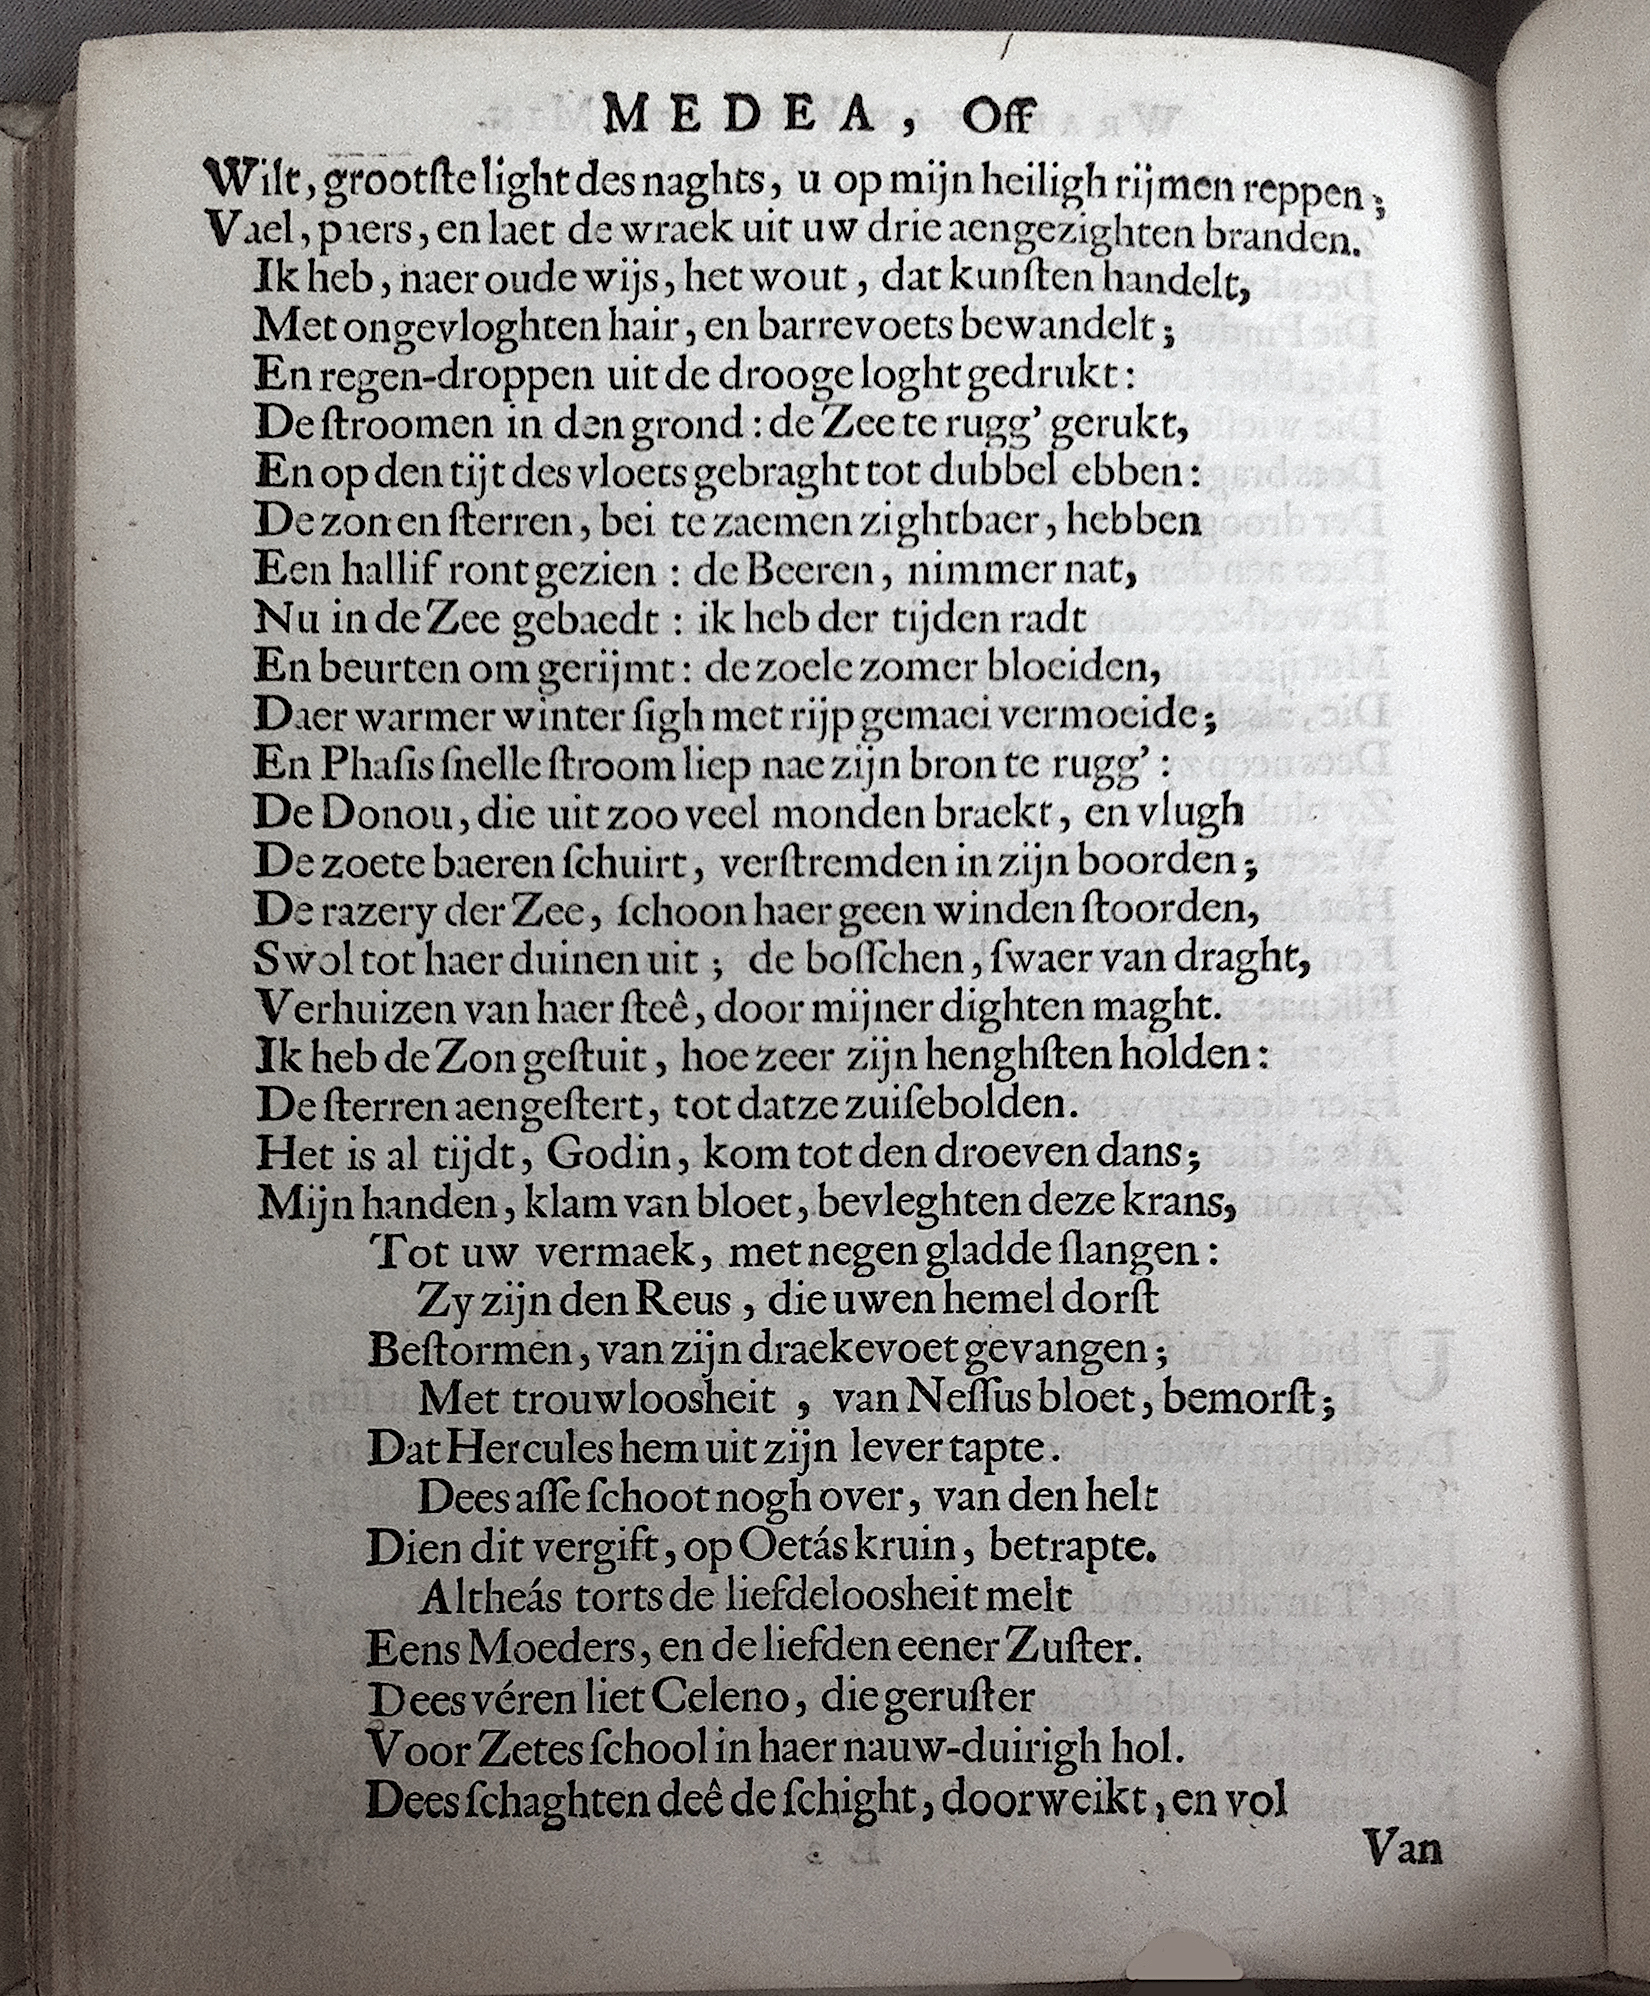 MEDEA, Off
Wilt, grootſte light des naghts, u op mijn heiligh rijmen reppen;
Vael, paers, en laet de wraek uit uw drie aengezighten branden.
Ik heb, naer oude wijs, het wout, dat kunſten handelt,
Met ongevloghten hair, en barrevoets bewandelt;
En regen-droppen uit de drooge loght gedrukt:
De ſtroomen in den grond: de Zee te rugg' gerukt,
En op den tijt des vloets gebraght tot dubbel ebben:
De zon en ſterren, bei te zaemen zightbaer, hebben
Een hallif ront gezien : de Beeren, nimmer nat,
Nu in de Zee gebaedt : ik heb der tijden radt
En beurten om gerijmt: de zoele zomer bloeiden,
Daer warmer winter ſigh met rijp gemaei vermoeide;
En Phaſis ſnelle ſtroom liep nae zijn bron te rugg':
De Donou, die uit zoo veel monden braekt, en vlugh
De zoete baeren ſchuirt, verſtremden in zijn boorden;
De razery der Zee, ſchoon haer geen winden ſtoorden,
Swol tot haer duinen uit; de boſſchen, ſwaer van draght,
Verhuizen van haer ſteê, door mijner dighten maght.
Ik heb de Zon geſtuit, hoe zeer zijn henghſten holden:
De ſterren aengeſtert, tot datze zuiſebolden.
Het is al tijdt, Godin, kom tot den droeven dans;
Mijn handen, klam van bloet, bevleghten deze krans,
Tot uw vermaek, met negen gladde ſlangen:
Zy zijn den Reus, die uwen hemel dorſt
Beſtormen, van zijn draekevoet gevangen;
Met trouwloosheit, van Neſſus bloet, bemorſt;
Dat Hercules hem uit zijn lever tapte.
Dees aſſe ſchoot nogh over, van den helt
Dien dit vergift, op Oetás kruin, betrapte.
Altheás torts de liefdeloosheit melt
Eens Moeders, en de liefden eener Zuſter.
Dees véren liet Celeno, die geruſter
Voor Zetes ſchool in haer nauw-duirigh hol.
Dees ſchaghten deê de ſchight, doorweikt, en vol
Van